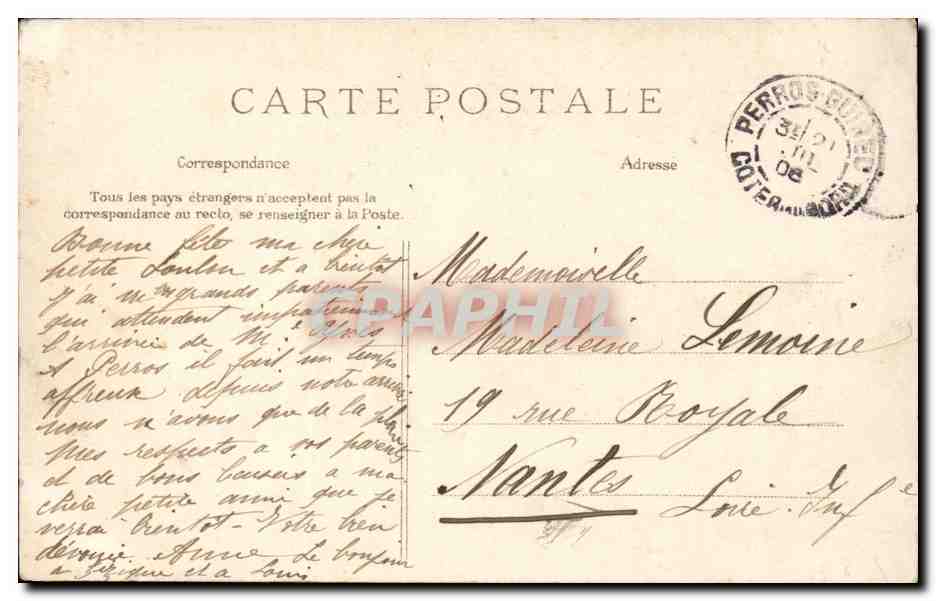 CARTE POSTALE
PERROS-GUIREC
COTES-DU-NORD
Correspondance
Adresse
Tous les pays étrangers n'acceptent pas la
correspondance au recto, se renseigner à la Poste.
Bonne fête ma chère
petite Loulou et a bientot
J'ai mes grands parents
qui attendent impatiemment
l'arrivée de M
A Perros il fait un temps
affreux depuis notre arrivée
nous n'avons que de la pluie
Mes respects a vos parents
et de bons baisers a ma
chère petite amie que je
verrai bientot - Votre bien
dévouée Anne Le bonjour
a et a Louis
Mademoiselle
Madeleine Lemoine
19 rue Royale
Nantes
Loire Infe
CPAPHIL